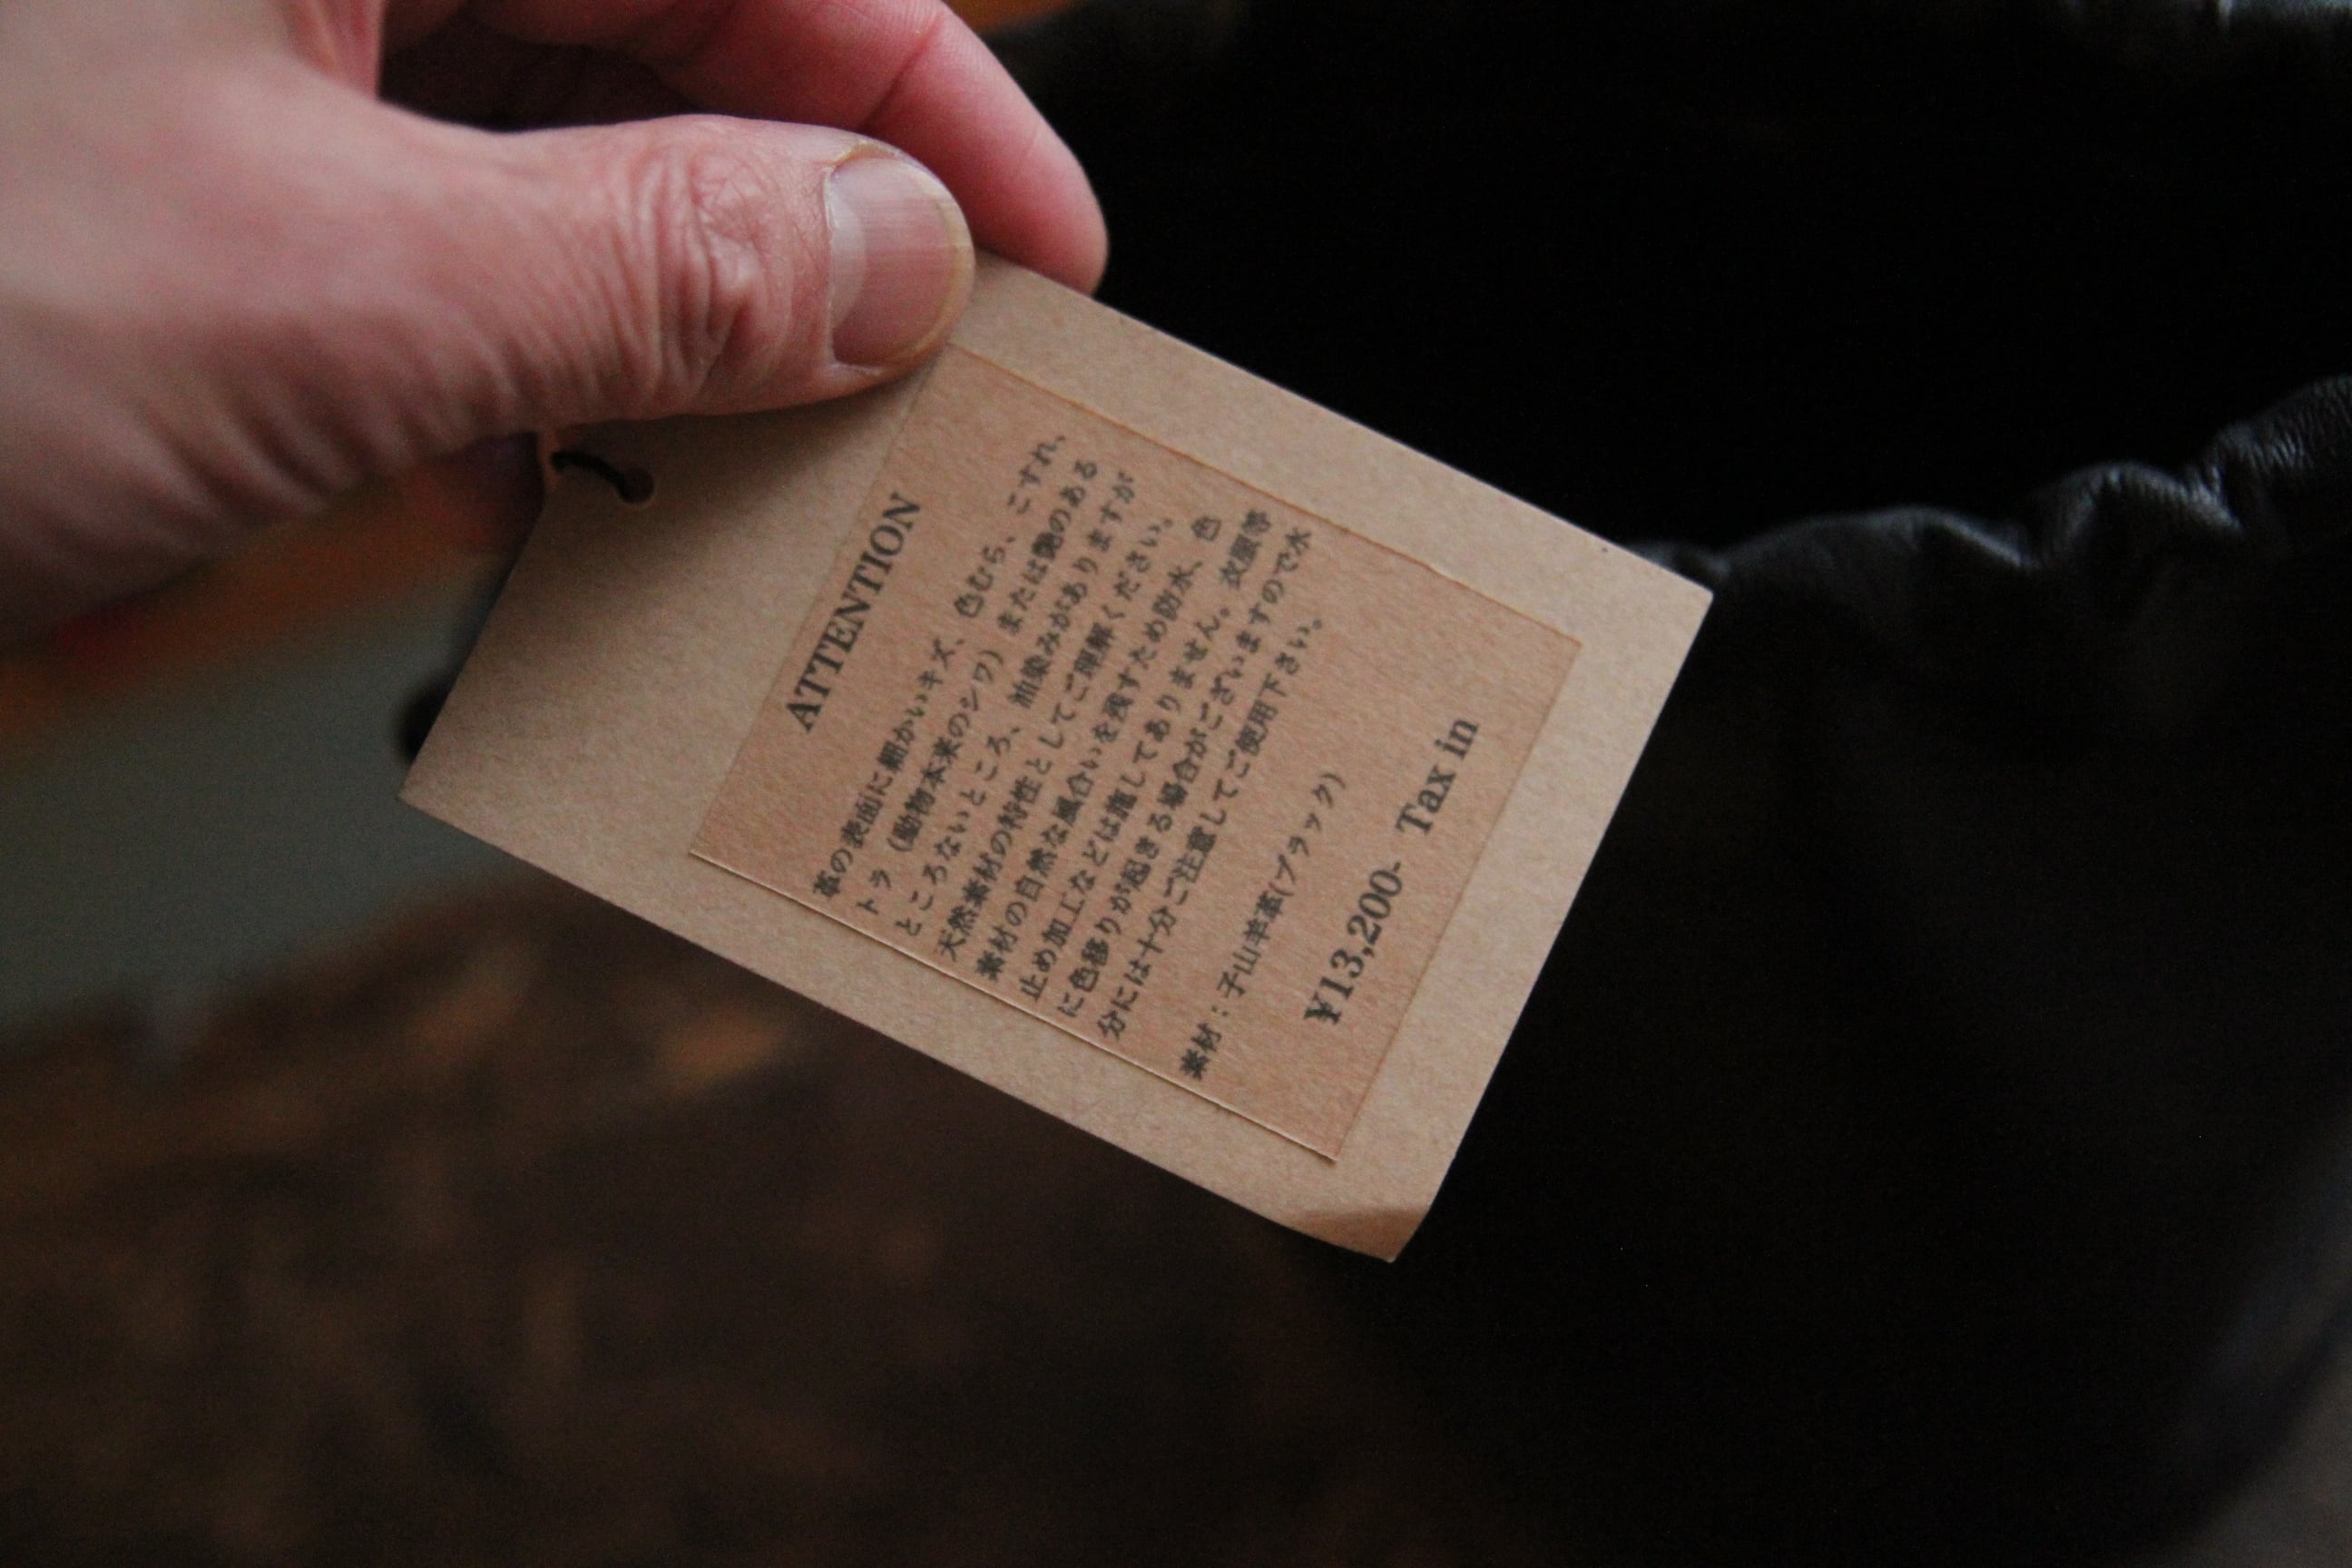 ATTENTION
革の表面に細かいキズ、色むら、こすれ、
トラ（動物本来のシワ）または艶のある
ところないところ、油染みがありますが
天然素材の特性としてご理解ください。
素材の自然な風合いを残すため防水、色
止め加工などは施してありません。衣服等
に色移りが起きる場合がございますので水
分には十分ご注意してご使用下さい。
素材：子山羊革(ブラック)
¥13,200- Tax in